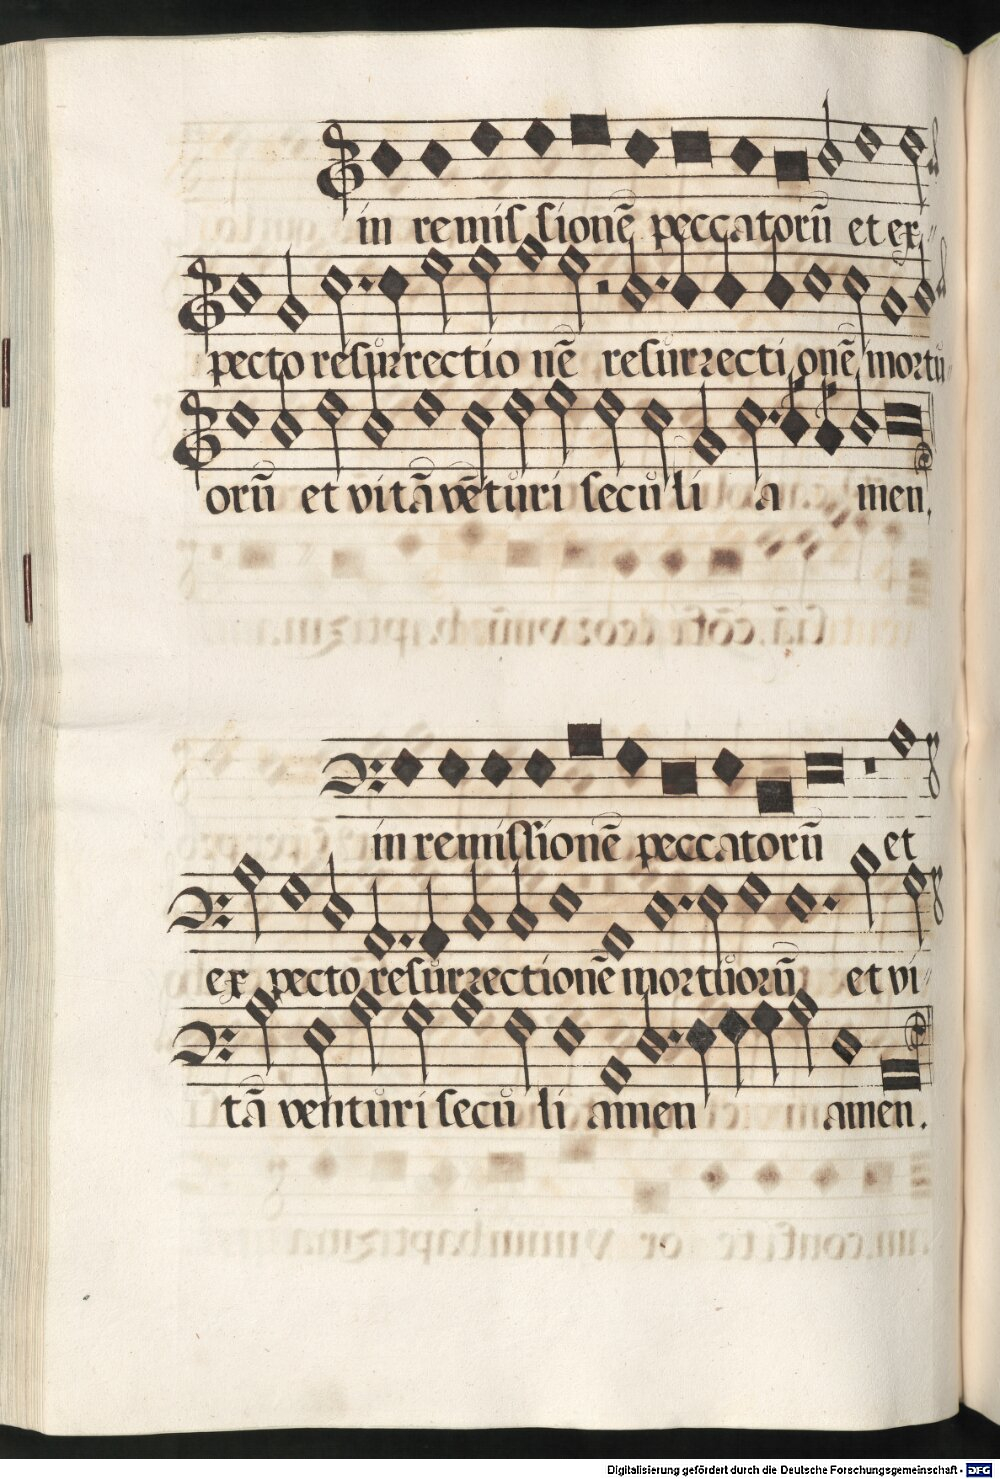 in remissionē peccatorū et ex-
pecto resurrectio nē resurrecti onē mortu-
orū et vitā vētu̇ri secu̇ li a men.
in remissionē peccatorū et
ex pecto resurrectionē mortuorū et vi-
tā ventu̇ri secu̇ li amen amen.
Digitalisierung gefördert durch die Deutsche Forschungsgemeinschaft - DFG